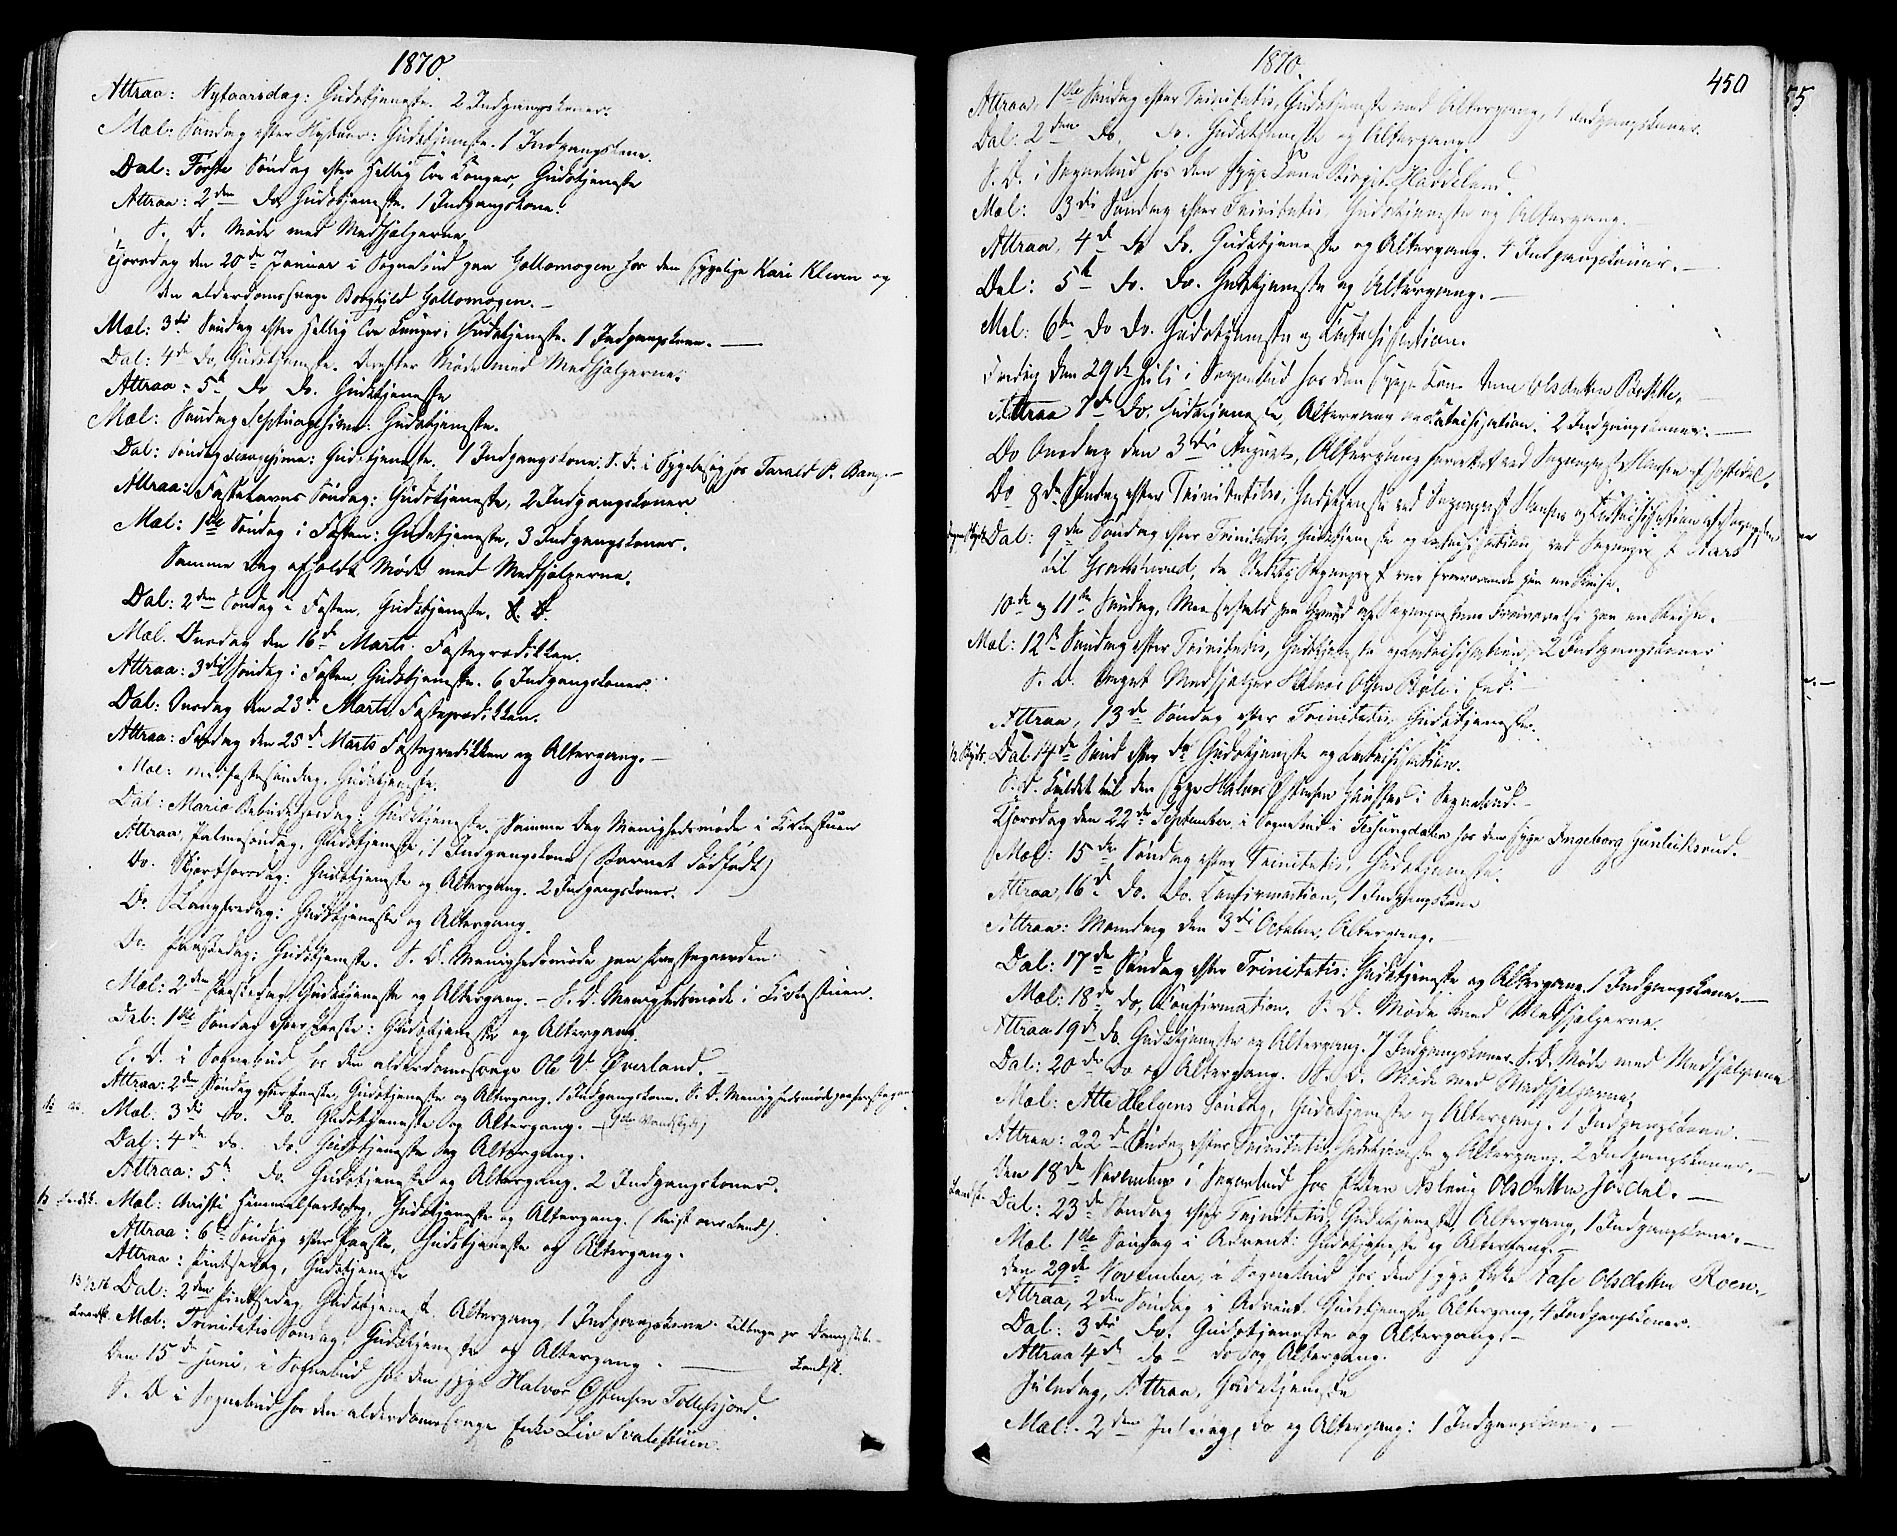 1870.
Attraa: Nytaarsdag: Gudstjeneste. 2 Indgangskoner.
Mæl: Søndag efter Nytaar: Gudstjeneste. 1 Indgangskone.
Dal: Første Søndag efter Hellig Tre Konger, Gudstjeneste
Attraa: 2den Do, Gudstjeneste. 1 Indgangskone.
S. D. Møde med Medhjælperne,
Torsdag den 20de Januar i Sognebud paa Gollomogen hos den sygelige Kari Kleven og
den alderdomssvage Borghild Gollomogen. —
Mæl: 3die Søndag efter Hellig Tre Konger: Gudstjeneste. 1 Indgangskone. —
Dal: 4de Do, Gudstjeneste. Derefter Møde med Medhjælperne.
Attraa: 5te Do Do. Gudstjeneste
Mæl: Søndag Septuagesima: Gudstjeneste.
Dal: Søndag Sexagesima: Gudstjeneste. 1 Indgangskone. S. D. i Sygebesøg hos Tarald P. Bang. —
Attraa: Fastelavns Søndag: Gudstjeneste, 2 Indgangskoner
Mæl: 1ste Søndag i Fasten: Gudstjeneste, 3 Indgangskoner.
Samme Dag afholdt Møde med Medhjælperne.
Dal: 2den Søndag i Fasten, Gudstjeneste.
Mæl. Onsdag den 16de Marts: Fasteprædiken.
Attraa: 3die Søndag i Fasten, Gudstjeneste. 6 Indgangskoner.
Dal: Onsdag den 23de Marts Fasteprædiken.
Attraa: Fredag den 25de Marts Fasteprædiken og Altergang. —
Mæl: Midfastesøndag, Gudstjeneste.
Dal: Mariæ Bebudelsesdag: Gudstjeneste. Samme Dag Menighedsmøde i Kirkestuen
Attraa, Palmesøndag, Gudstjeneste, 1 Indgangskone (Barnet dødfødt)
Do. Skjærtorsdag: Gudstjeneste og Altergang. 2 Indgangskoner.
Do. Langfredag: Gudstjeneste og Altergang.
Do. Paaskedag: Gudstjeneste. S. D. Menighedsmøde paa Præstegaarden.
Mæl: 2den Paaskedag, Gudstjeneste og Altergang. — S. D. Menighedsmøde i Kirkestuen.
Dal: 1ste Søndag efter Paaske: Gudstjeneste og Altergang.
S. D. i Sognebud hos den alderdomssvage Ole V. Øverland. —
Attraa: 2den Søndag efter Paaske, Gudstjeneste og Altergang. 1 Indgangskone. S. D. Menighedsmøde paa Præstegaarden
Mæl: 3die Do. Do. Gudstjeneste og Altergang.
Dal: 4de do. do. Gudstjeneste og Altergang.
Attraa: 5te do. Gudstjeneste og Altergang. 2 Indgangskoner.
Mæl: Christi Himmelfartsdag, Gudstjeneste og Altergang. (Reist over Land).
Attraa: 6te Søndag efter Paaske, Gudstjeneste og Altergang.
Attraa: Pintsedag, Gudstjeneste
Dal: 2den Pintsedag Gudstjeneste. Altergang, 1 Indgangskone. Tilbage pr Dampskib. —
Landsk. Mæl: Trinitatis Søndag, Gudstjeneste og Altergang. — Landsk.
Den 15de Juni, i Sognebud hos den syge Halvor Østensen Tollefsjord.
S. D i Sognebud hos den alderdomssvage Enke Liv Svalestuen.
1870.
450
55
Attraa, 1ste Søndag efter Trinitatis, Gudstjeneste med Altergang, 1 Indgangskone.
Dal: 2den Do. Do. Gudstjeneste og Altergang.
S. D. i Sognebud hos den syge Kone Birgit Haddeland.
Mæl: 3die Søndag efter Trinitatis Gudstjeneste og Altergang. —
Attraa 4de do do. Gudstjeneste og Altergang. 4 Indgangskoner. —
Dal: 5te do. do. Gudstjeneste og Altergang. —
Mæl: 6te do do. Gudstjeneste og Katechisation.
Fredag den 29de Juli i Sognebud hos den syge Kone Anne Olsdatter Bakke.
Attraa 7de do, Gudstjeneste, Altergang og Catechisation. 2 Indgangskoner. —
Do Onsdag den 3die August, Altergang forrettet ved Sognepræst Hansen af Hitterdal.
Do 8de Søndag efter Trinitatis, Gudstjeneste ved Sognepræst Hansen og Katechisation af Sognepræsten
Dal: 9de Søndag efter Trinitatis, Gudstjeneste og Catechisation ved Sognepræst
til Gransherred, da Stedets Sognepræst var fraværende paa en Reise.
10de og 11te Søndag, Messefald paa Grund af Sognepræstens Fraværelse paa en Reise.
Mæl: 12te Søndag efter Trinitatis, Gudstjeneste og Catechisation, 2 Indgangskoner
S. D. Møde Medhjælper Halvor Olsen
Attraa, 13de Søndag efter Trinitatis, Gudstjeneste.
Dal 14de Sønd efter do Gudstjeneste og Catechisation.
S. D. kaldet til den syge Halvor Østensen i Sognebud. —
Torsdag den 22de September, i Sognebud i Tessungdalen hos den syge Ingeborg Gunleiksrud.
Mæl: 15de Søndag efter Trinitatis, Gudstjeneste.
Attraa, 16de do. Do. Confirmation, 1 Indgangskone
Attraa: Mandag den 3die October, Altergang.
Dal: 17de Søndag efter Trinitatis: Gudstjeneste og Altergang. 1 Indgangskone. —
Mæl: 18de do, Confirmation. S. D. Møde med Medhjælperne.
Attraa 19de do. Gudstjeneste og Altergang. 7 Indgangskoner. S. D. Møde med Medhjælperne
Dal: 20de do og Altergang. S. D. Møde med Medhjælperne
Mæl: Alle Helgens Søndag, Gudstjeneste og Altergang. 1 Indgangskone.
Attraa: 22de Søndag efter Trinitatis, Gudstjeneste og Altergang. 2 Indgangskoner. —
Den 18de November i Sognebud hos Enken Aslaug Olsdatter Jordal. —
Dal: 23de Søndag efter Trinitatis, Gudstjeneste, Altergang, 1 Indgangskone. —
Mæl 1ste Søndag i Advent: Gudstjeneste og Altergang. —
Den 29de November, i Sognebud hos den syge Enke Olsdatter Roen.
Attraa, 2den Søndag i Advent. Gudstjeneste Altergang, 4 Indgangskoner.
Dal: 3die do. Gudstjeneste og Altergang. —
Attraa 4de do — do og Altergang.
Juledag, Attraa, Gudstjeneste
Mæl: 2den Juledag, do og Altergang: 1 Indgangskone. —